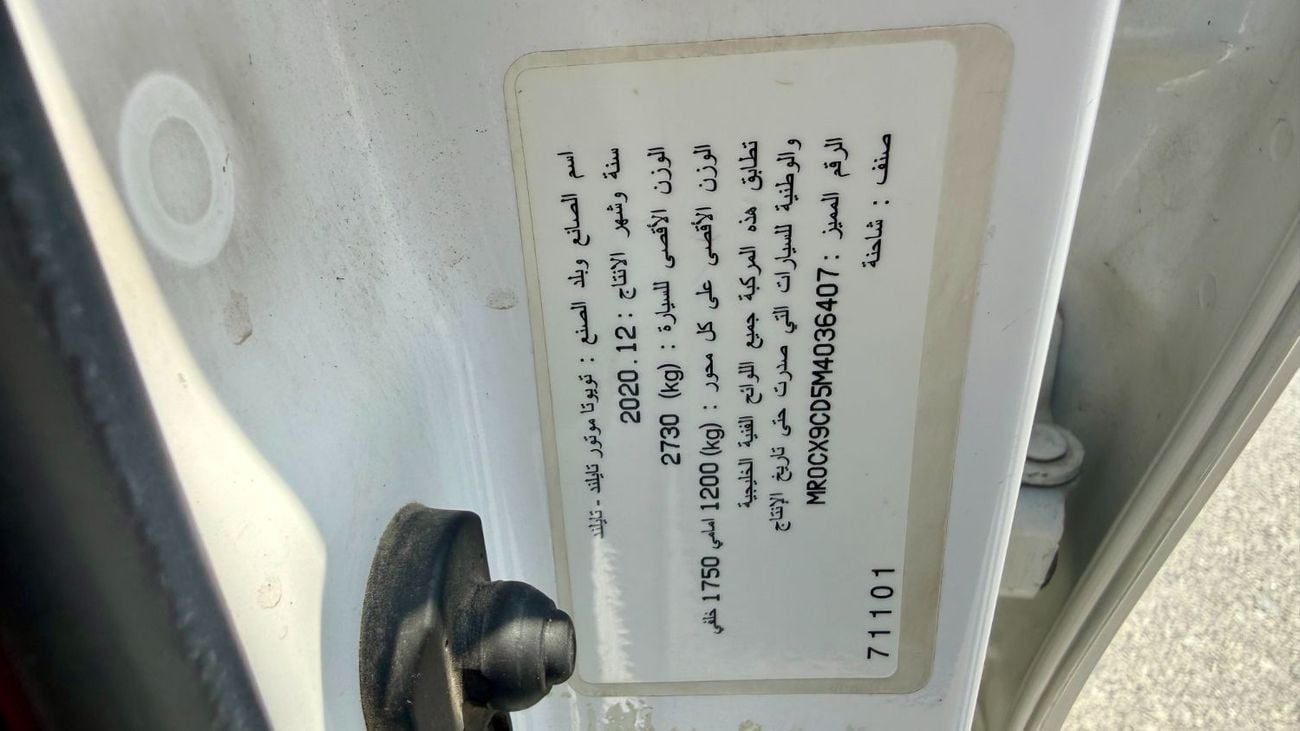 اسم الصانع وبلد الصنع : تويوتا موتور تايلند - تايلند
سنة وشهر الانتاج : 2020.12
الوزن الأقصى للسيارة : (kg) 2730
الوزن الأقصى على كل محور : (kg) 1200 امامي 1750 خلفي
تطابق هذه المركبة جميع اللوائح الفنية الخليجية
والوطنية للسيارات التي صدرت حتى تاريخ الإنتاج
الرقم المميز : MR0CX9CD5M4036407
صنف : شاحنة
711101